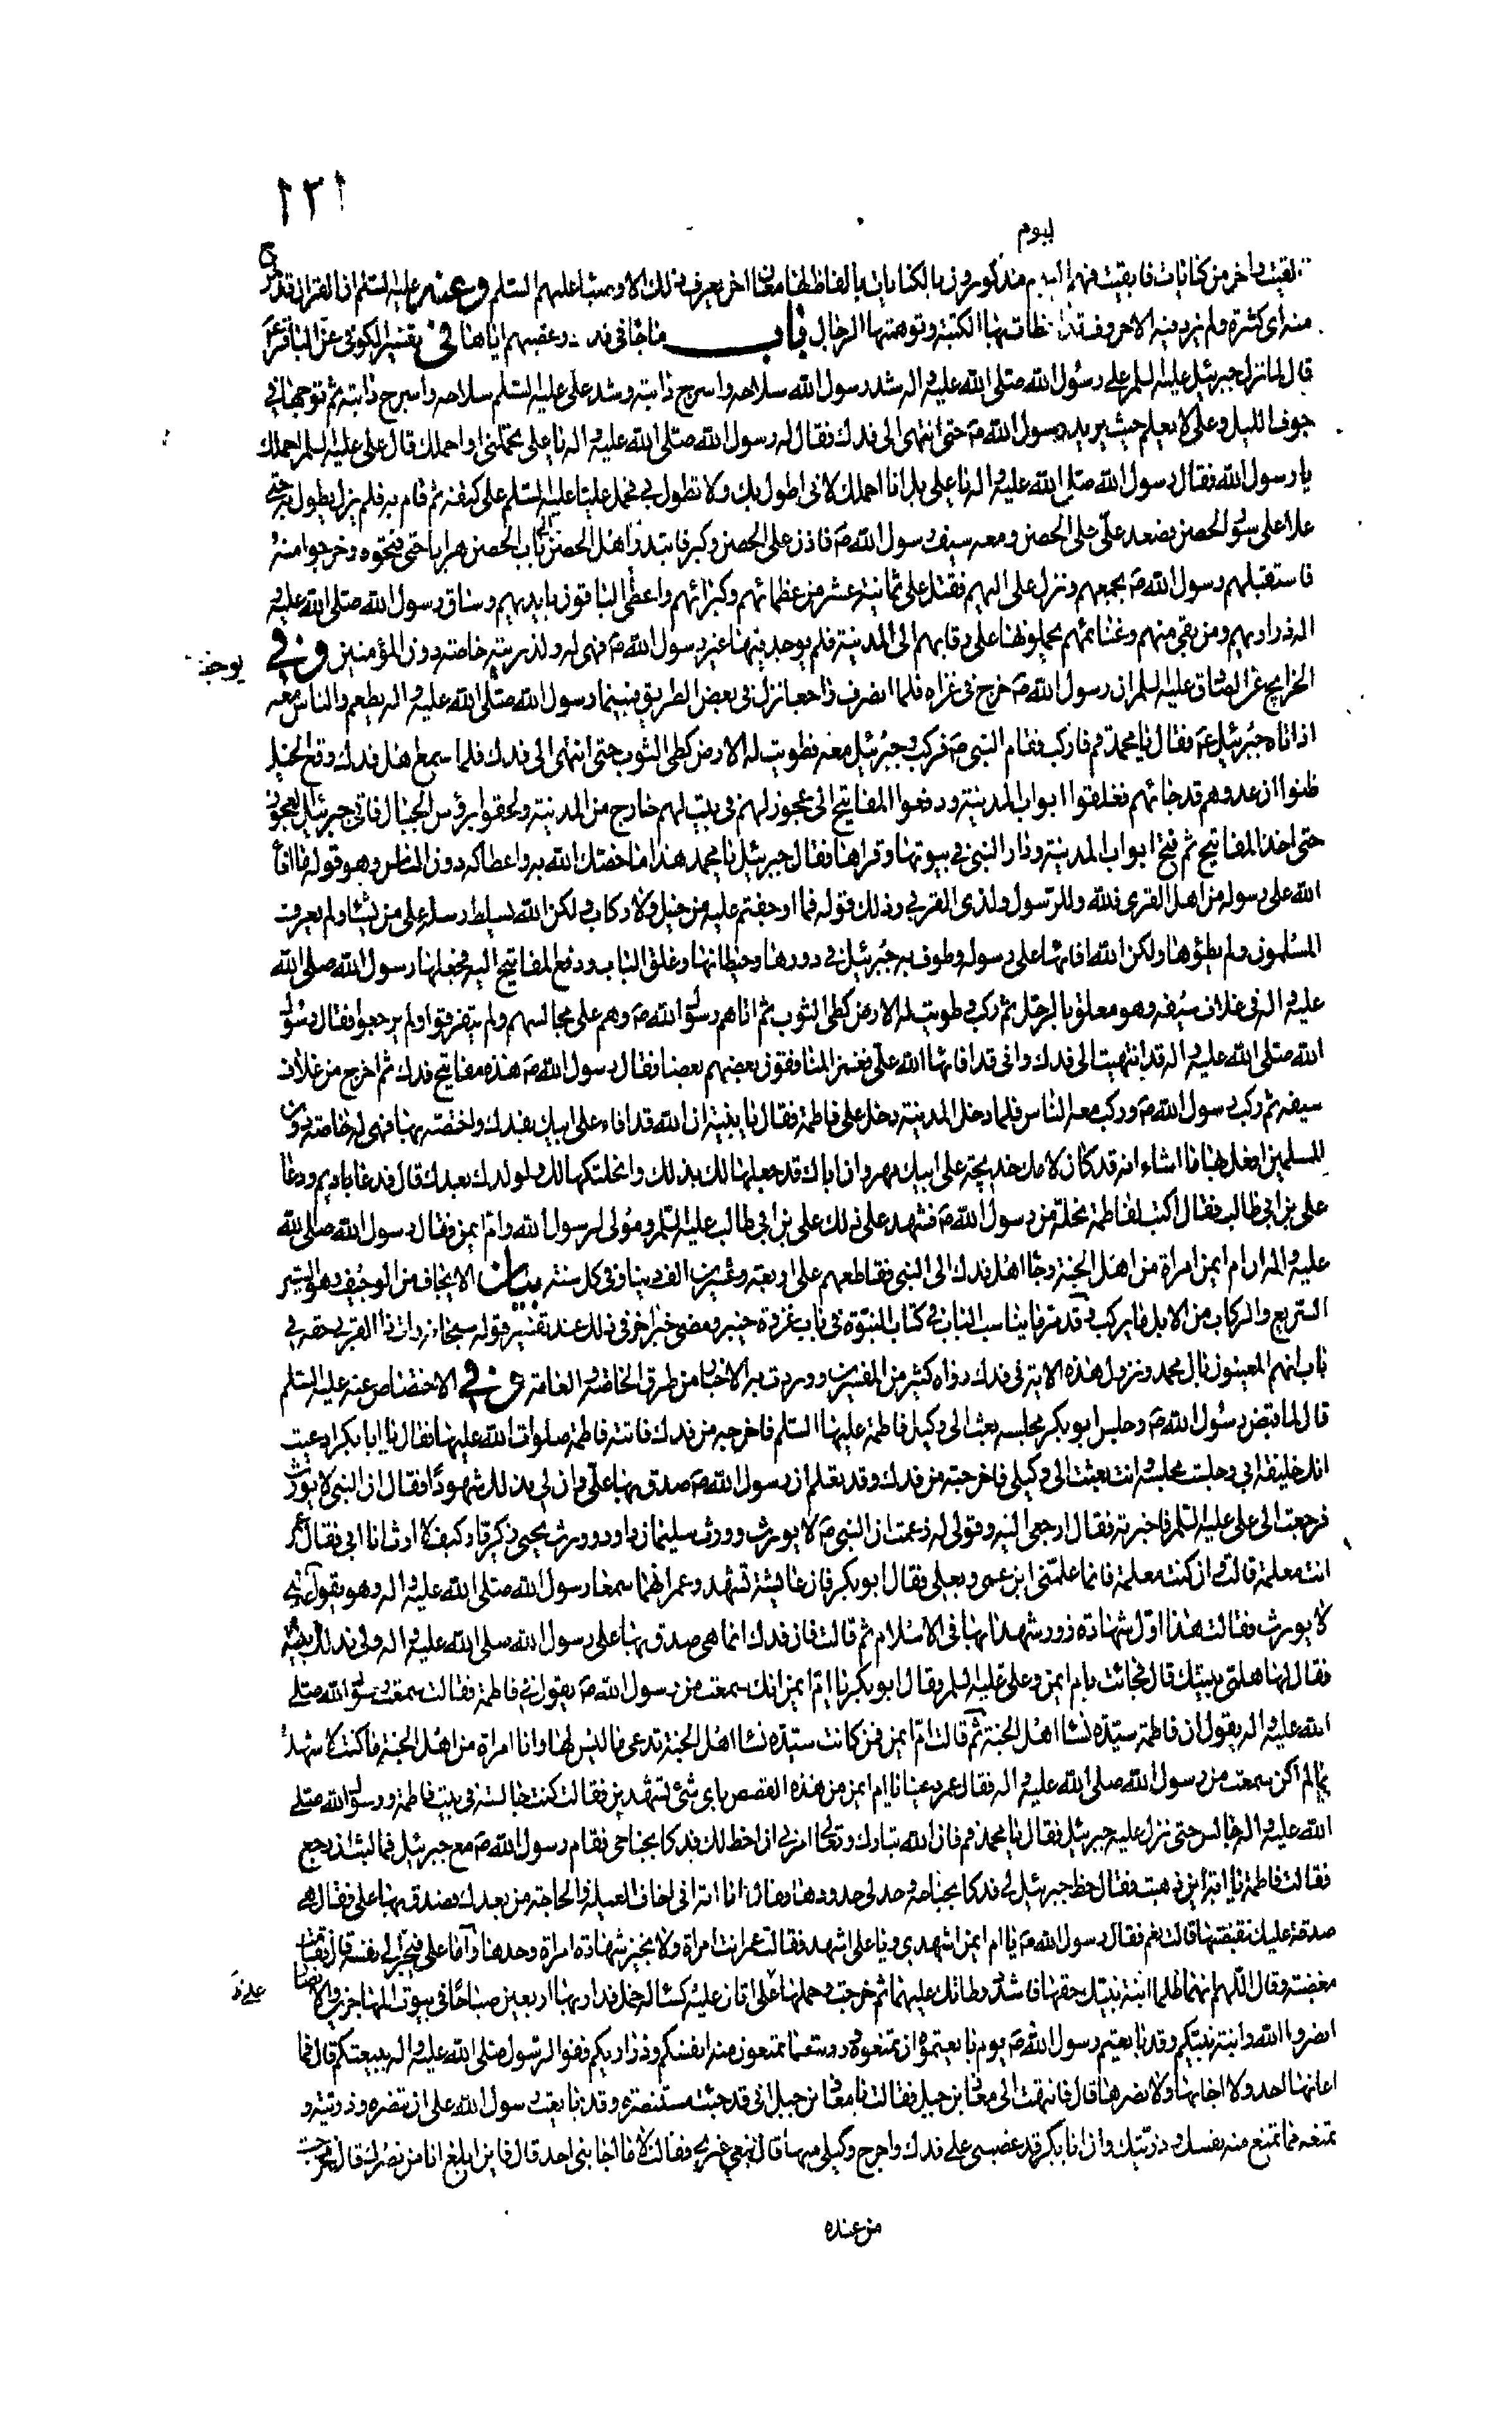 ١٢١
ليوم
لقيت واخر من كنايات فما بقيت فهم اليوم مذكورون بالكنايات بالفاظ لها معان اخر يعرف ذلك الاوصياء عليهم السلم وعنه عليه السلم ان القران قد طرح
منه اى كثيرة ولم يزد فيه الا حروف قد اخطات بها الكتبة وتوهمتها الرجال باب ما جاء فى فدك وغصبهم اياها فى تفسير الكوفى عن الباقر ع
قال لما نزل جبرئيل عليه السلم على رسول الله صلى الله عليه واله شد رسول الله سلاحه واسرج دابته وشد على عليه السلم سلاحه واسرج دابته ثم توجها فى
جوف الليل وعلى لا يعلم حيث يريد رسول الله ص حتى انتهى الى فدك فقال له رسول الله صلى الله عليه واله يا على تحملنى او احملك قال على عليه السلم احملك
يا رسول الله فقال رسول الله صلى الله عليه واله يا على بل انا احملك لانى اطول بك ولا تطول بى فحمل عليا عليه السلم على كتفه ثم قام به فلم يزل يطول به حتى
علا على سور الحصن فصعد على على الحصن ومعه سيف رسول الله ص فاذن على الحصن وكبر فابتدر اهل الحصن الى باب الحصن هرابا حتى فتحوه وخرجوا منه
فاستقبلهم رسول الله ص بجمعهم ونزل على اليهم فقتل على ثمانية عشر من عظمائهم وكبرائهم واعطى الباقون بايديهم وساق رسول الله صلى الله عليه و
اله ذراريهم ومن بقى منهم وغنائمهم يحملونها على رقابهم الى المدينة فلم يوجف فيها غير رسول الله ص فهى له ولذريته خاصة دون المؤمنين وفى
يوجف
الخرايج عن الصادق عليه السلم ان رسول الله ص خرج فى غزاه فلما انصرف راجعا نزل فى بعض الطريق فبينما رسول الله صلى الله عليه واله يطعم والناس معه
اذ اتاه جبرئيل ع فقال يا محمد قم فاركب فقام النبى ص فركب وجبرئيل معه فطويت له الارض كطى الثوب حتى انتهى الى فدك فلما سمع اهل فدك وقع الخيل
ظنوا ان عدوهم قد جائهم فغلقوا ابواب المدينة ودفعوا المفاتيح الى عجوز لهم فى بيت لهم خارج من المدينة ولحقوا برؤس الجبال فاتى جبرئيل العجوز
حتى اخذ المفاتيح ثم فتح ابواب المدينة ودار النبى فى بيوتها وقراها فقال جبرئيل يا محمد هذا ما خصك الله به واعطاكه دون الناس وهو قوله ما افاء
الله على رسوله من اهل القرى فلله وللرسول ولذى القربى وذلك قوله فما اوجفتم عليه من خيل ولا ركاب ولكن الله يسلط رسله على من يشاء ولم يعرف
المسلمون ولم يطؤها ولكن الله افائها على رسوله وطوف به جبرئيل فى دورها وحيطانها وغلق الباب ودفع المفاتيح اليه فجعلها رسول الله صلى الله
عليه واله فى غلاف سيفه وهو معلق بالرحل ثم ركب وطويت له الارض كطى الثوب ثم اتاهم رسول الله ص وهم على مجالسهم ولم يتفرقوا ولم يبرحوا فقال رسول
الله صلى الله عليه واله قد انتهيت الى فدك وانى قد افائها الله على فغمز المنافقون بعضهم بعضا فقال رسول الله ص هذه مفاتيح فدك ثم اخرج من غلاف
سيفه ثم ركب رسول الله ص وركب معه الناس فلما دخل المدينة دخل على فاطمة فقال يا بنية ان الله قد افاء على ابيك بفدك واختصه بها فهى له خاصة دون
المسلمين افعل بها ما اشاء انه قد كان لامك خديجة على ابيك مهر وان اباك قد جعلها لك بذلك وانحلتكها لك ولولدك بعدك قال فدعا باديم ودعا
على بن ابى طالب فقال اكتب لفاطمة نحلة من رسول الله ص فشهد على ذلك على بن ابى طالب عليه السلم ومولى لرسول الله وام ايمن فقال رسول الله صلى الله
عليه واله ان ام ايمن امراة من اهل الجنة وجاء اهل فدك الى النبى فقاطعهم على اربعة وعشرين الف دينار فى كل سنة بيان الايجاف من الوجيف وهو السير
السريع والركاب من الابل ما يركب قد مر ما يناسب الباب فى كتاب النبوة فى باب غزوة خيبر ومضى خبر اخر فى ذلك عند تفسير قوله سبحانه وات ذا القربى حقه فى
باب انهم المعنيون بال محمد ونزول هذه الاية فى فدك رواه كثير من المفسرين ووردت به الاخبار من طرق الخاصة والعامة وفى الاختصاص عنه عليه السلم
قال لما قبض رسول الله ص وجلس ابو بكر مجلسه بعث الى وكيل فاطمة عليها السلم فاخرجه من فدك فاتته فاطمة صلوات الله عليها فقال يا ابا بكر ادعيت
انك خليفة ابى وجلست مجلسه وانت بعثت الى وكيلى فاخرجته من فدك وقد تعلم ان رسول الله ص صدق بها على وان لى بذلك شهودا فقال ان النبى لا يورث
فرجعت الى على عليه السلم فاخبرته فقال ارجعى اليه وقولى له زعمت ان النبى ص لا يورث وورث سليمان داود وورث يحيى زكريا وكيف لا ارث انا ابى فقال عمر
انت معلمة قالت وان كنت معلمة فانما علمنى ابن عمى وبعلى فقال ابو بكر فان عائشة تشهد وعمر انهما سمعا رسول الله صلى الله عليه واله وهو يقول النبى
لا يورث فقالت هذا اول شهادة زور شهدا بها فى الاسلام ثم قالت فان فدك انما هى صدق بها على رسول الله صلى الله عليه واله ولى بذلك بينة
فقال لها هلمى ببينتك قال فجائت بام ايمن وعلى عليه السلم فقال ابو بكر يا ام ايمن انك سمعت من رسول الله ص يقول فى فاطمة فقالت سمعت رسول الله صلى
الله عليه واله يقول ان فاطمة سيدة نساء اهل الجنة ثم قالت ام ايمن فمن كانت سيدة نساء اهل الجنة تدعى ما ليس لها وانا امراة من اهل الجنة ما كنت لاشهد
بما لم اكن سمعت من رسول الله صلى الله عليه واله فقال عمر دعينا يا ام ايمن من هذه القصص باى شئ تشهدين فقالت كنت جالسة فى بيت فاطمة ورسول الله صلى
الله عليه واله جالس حتى نزل عليه جبرئيل فقال يا محمد قم فان الله تبارك وتعالى امرنى ان اخط لك فدكا بجناحى فقام رسول الله ص مع جبرئيل فما لبثت ان رجع
فقالت فاطمة يا ابة اين ذهبت فقال خط جبرئيل لى فدكا بجناحه وحد لى حدودها فقالت يا ابة انى اخاف العيلة والحاجة من بعدك فصدق بها على فقال هى
صدقة عليك فقبضتها قالت نعم فقال رسول الله ص يا ام ايمن اشهدى ويا على اشهد فقالت عمر انت امراة ولا نجيز شهادة امراة وحدها واما على فيجر الى نفسه قال فقامت
مغضبة وقال اللهم انهما ظلما ابنة نبيك حقها فاشدد وطاتك عليهما ثم خرجت وحملها على اتان عليه كساء له خمل فدار بها اربعين صباحا فى بيوت المهاجرين والانصار
على ع
انصروا الله وابنة نبيكم وقد بايعتم رسول الله ص يوم بايعتموه ان تمنعوه وذريته مما تمنعون منه انفسكم وذراريكم ففوا لرسول صلى الله عليه واله ببيعتكم قال فما
اعانها احد ولا اجابها ولا نصرها قال فانتهت الى معاذ بن جبل فقالت يا معاذ بن جبل انى قد جئتك مستنصرة وقد بايعت رسول الله على ان تنصره وذريته و
تمنعه مما تمنع منه نفسك وذريتك وان ابا بكر قد غصبنى على فدك واخرج وكيلى منها قال فمعى غيرى فقالت لا ما اجابنى احد قال فاين ابلغ انا من نصرك قال فخرجت
من عنده